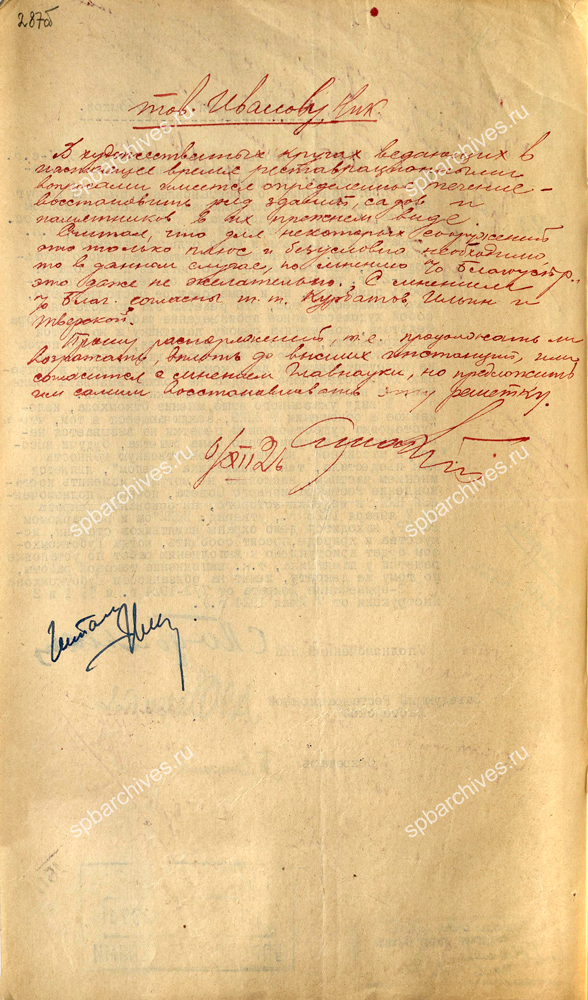 287об
тов. Иванову, Ник.
В художественных кругах ведающих в
настоящее время реставрационными
вопросами имеется определенное течение -
восстановить ряд зданий, садов и
памятников в их прежнем виде.
Считая, что для некоторых сооружений
это только плюс и безусловно необходимо
то в данном случае, по мнению П/о Благоустр.,
это даже не желательно. С мнением
П/о Благ. согласны т.т. Курбатов, Ильин и
Тверской.
Прошу распоряжений, т.е. продолжать ли
возражать, вплоть до высших инстанций, или
согласится с мнением Главнауки, но предложить
им самим восстанавливать эту решетку.
/XII 26
Читал
spbarchives.ru
spbarchives.ru
spbarchives.ru
spbarchives.ru
spbarchives.ru
spbarchives.ru
spbarchives.ru
spbarchives.ru